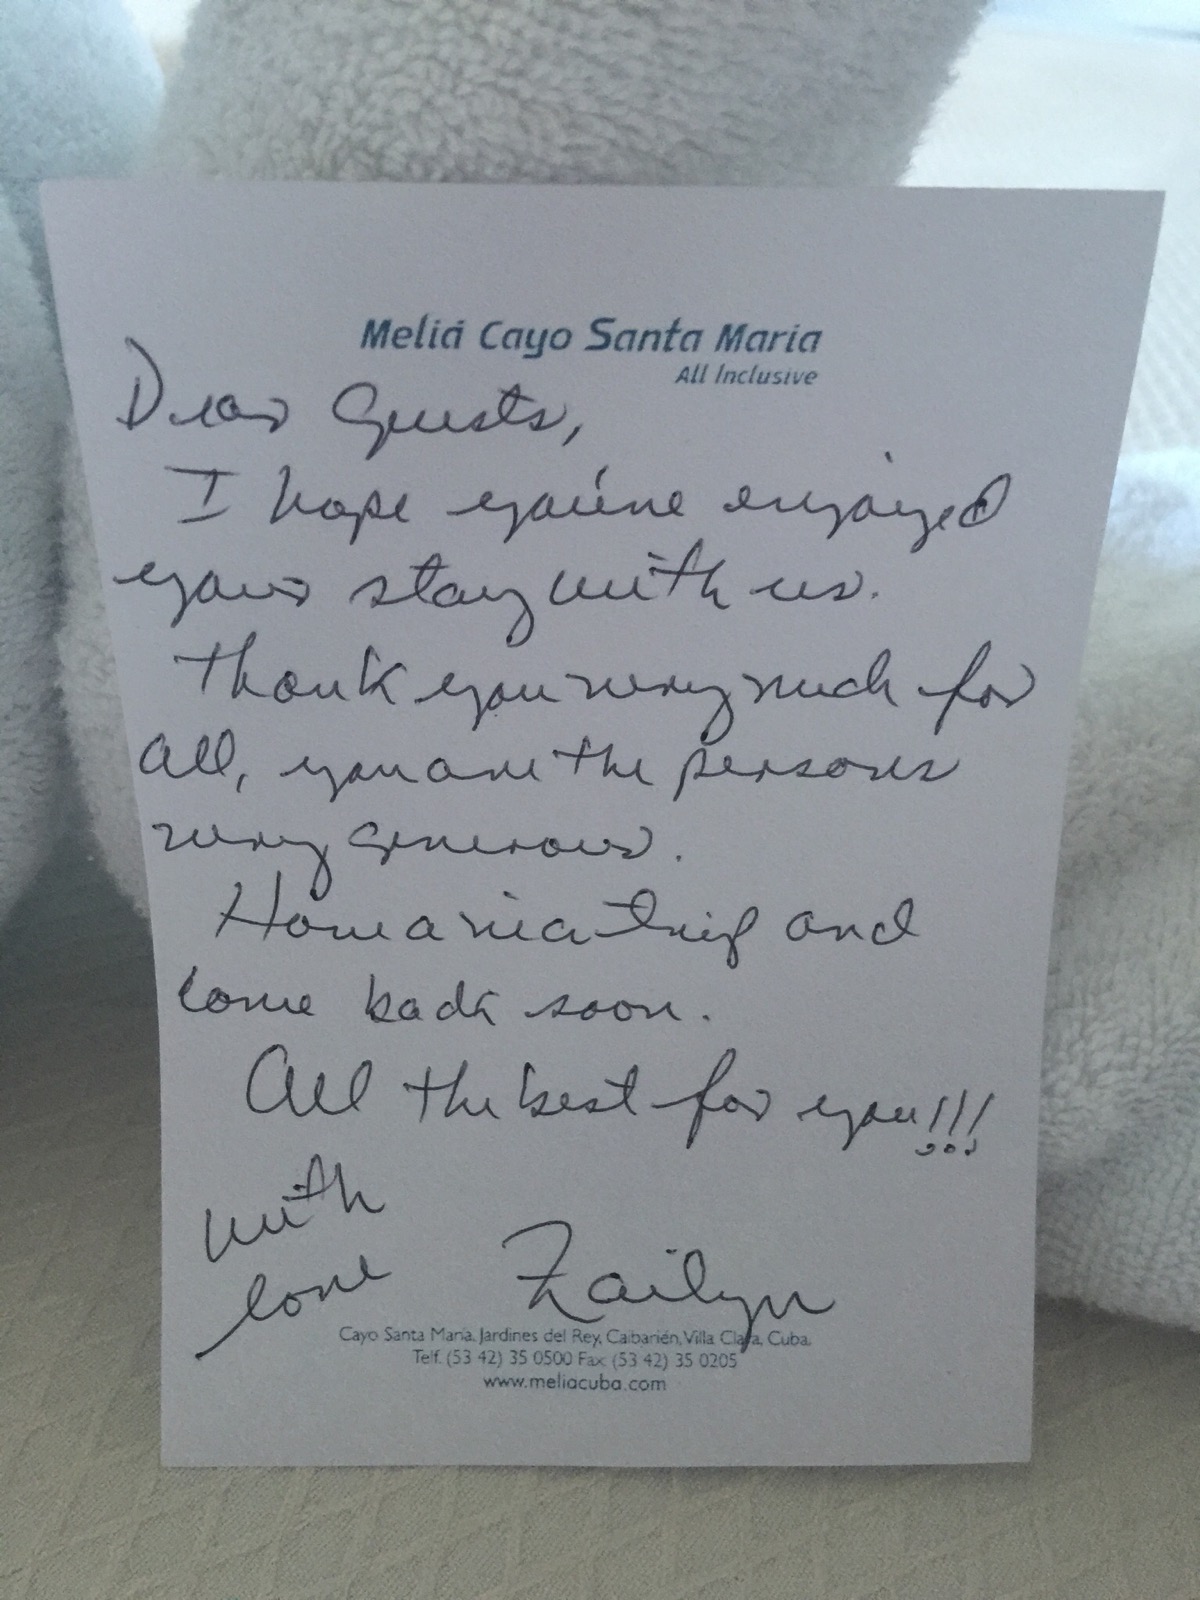 Meliá Cayo Santa Maria
All Inclusive
Dear Guests,
I hope you've enjoyed
your stay with us.
Thank you very much for
all, you are the persons
very generous.
Have a nice trip and
come back soon.
All the best for you!!!
with
love Zailyn
Cayo Santa Maria. Jardines del Rey, Caibarién, Villa Clara, Cuba.
Telf. (53 42) 35 0500 Fax (53 42) 35 0205
www.meliacuba.com